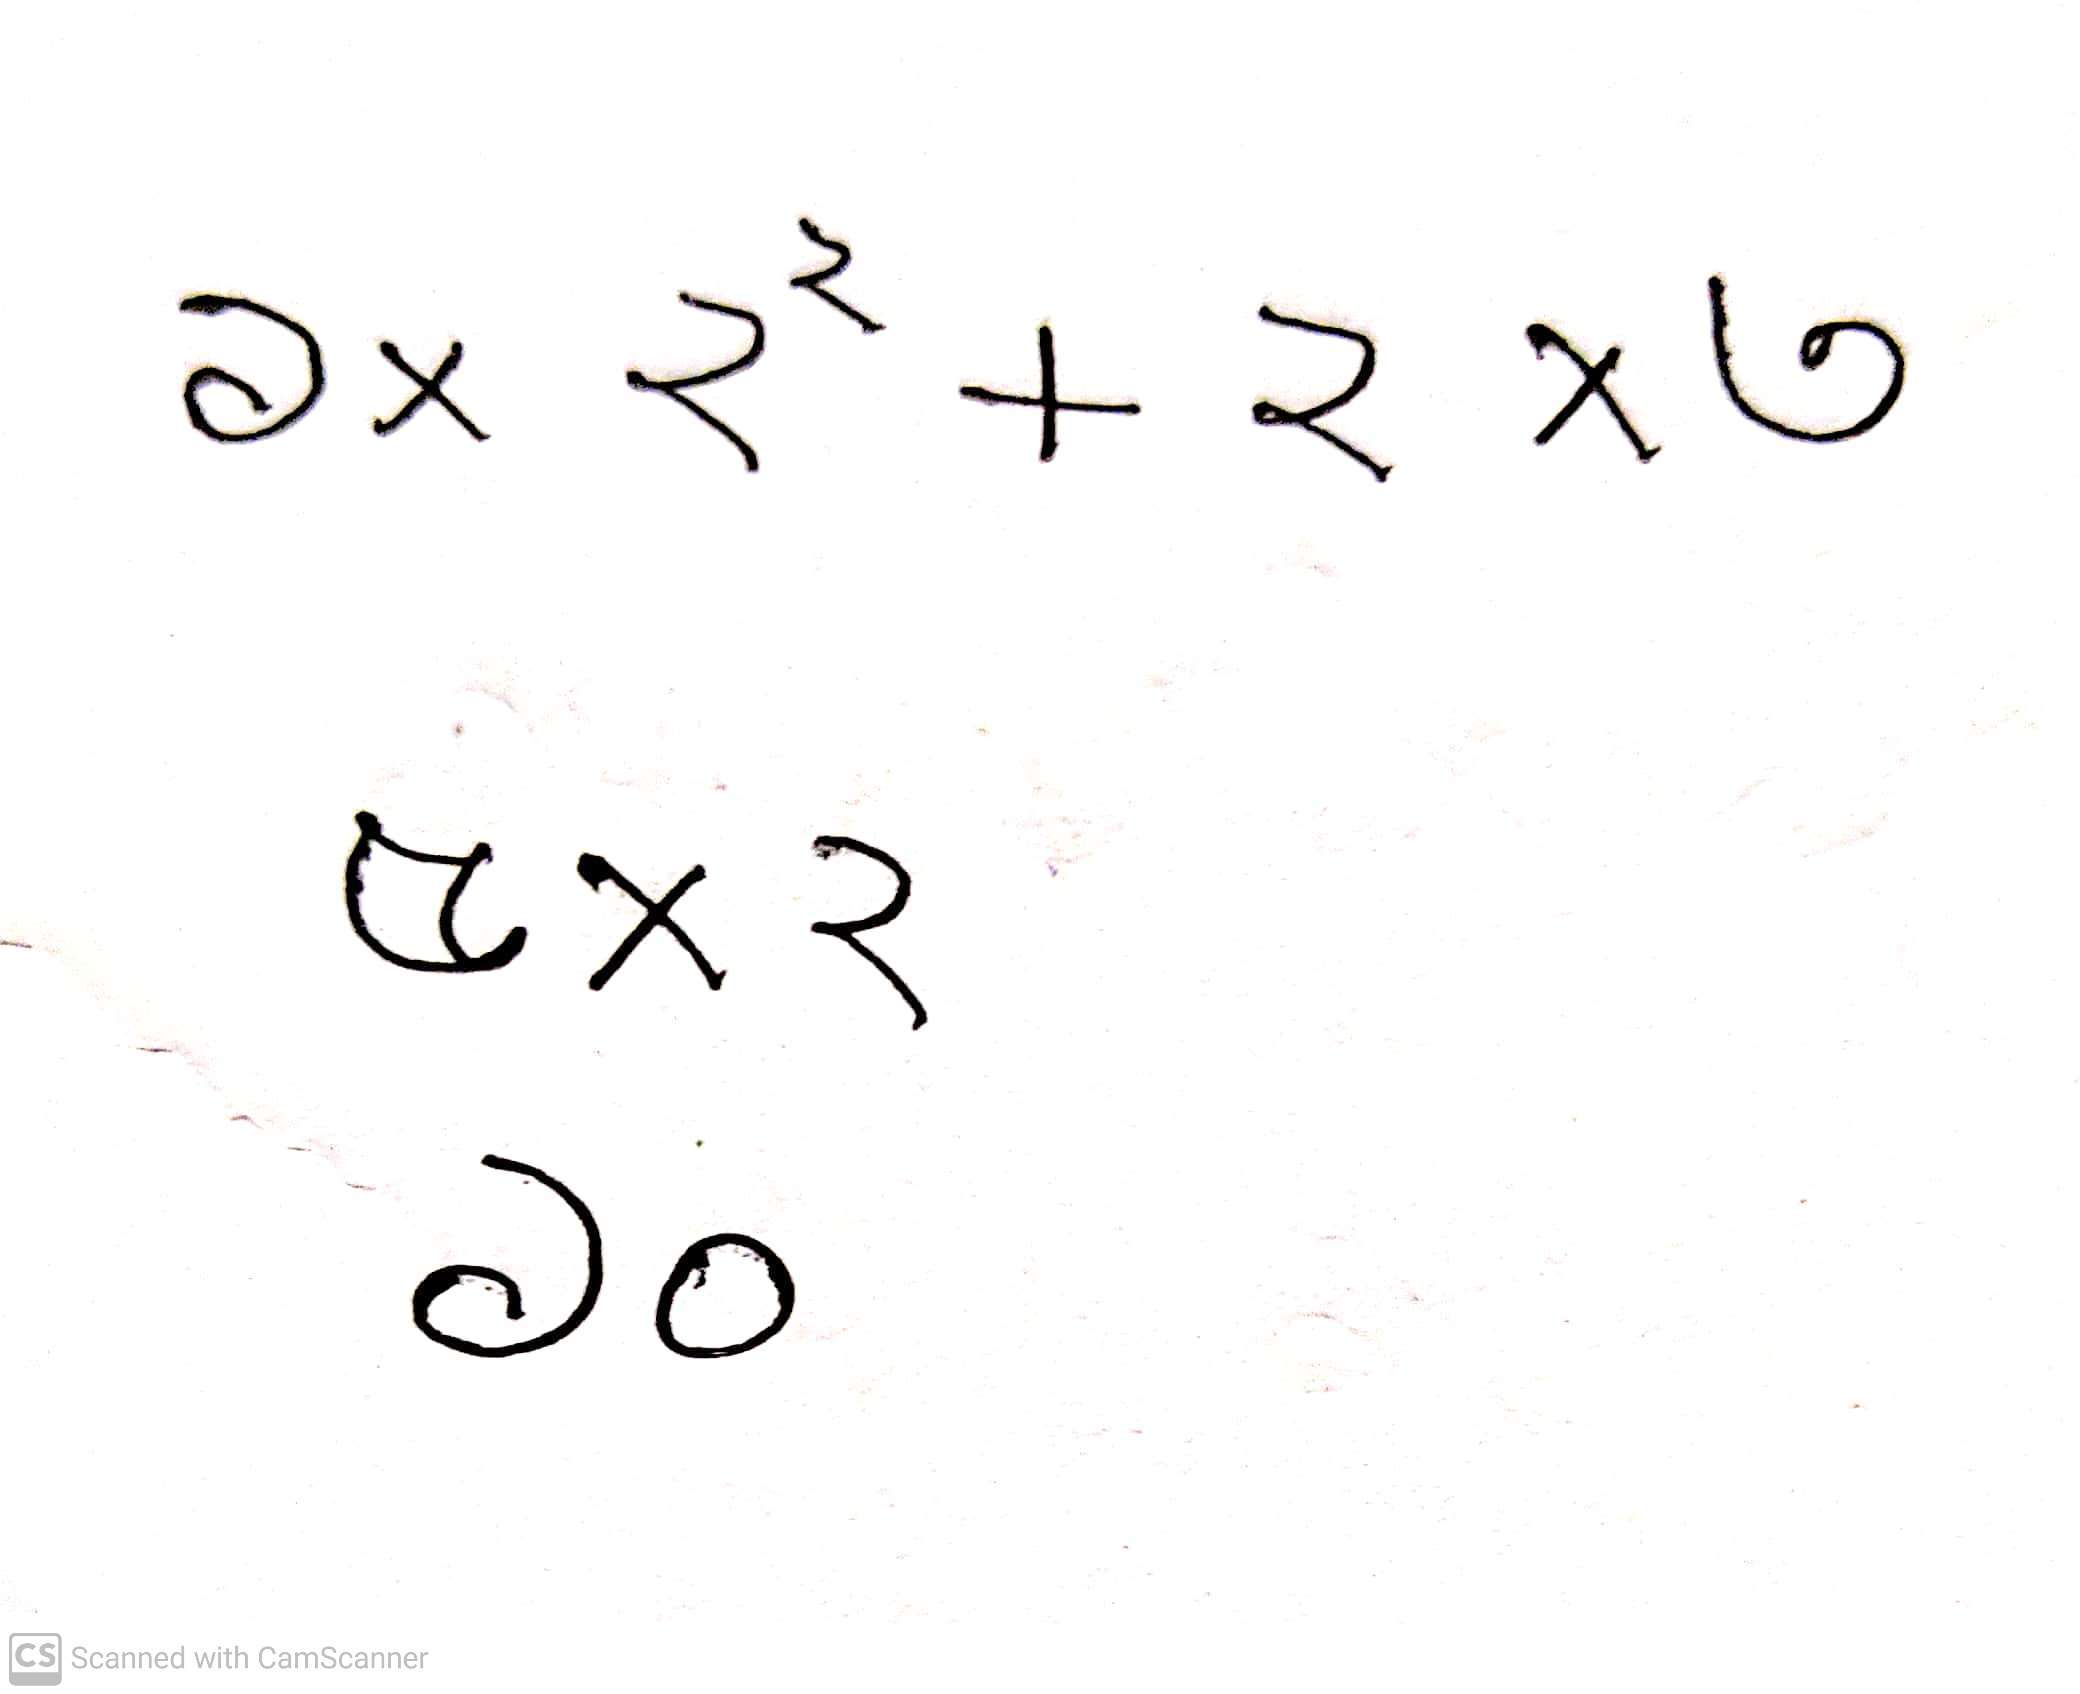 ১× ২² + ২ × ৩
৫×২
১০
CS Scanned with CamScanner